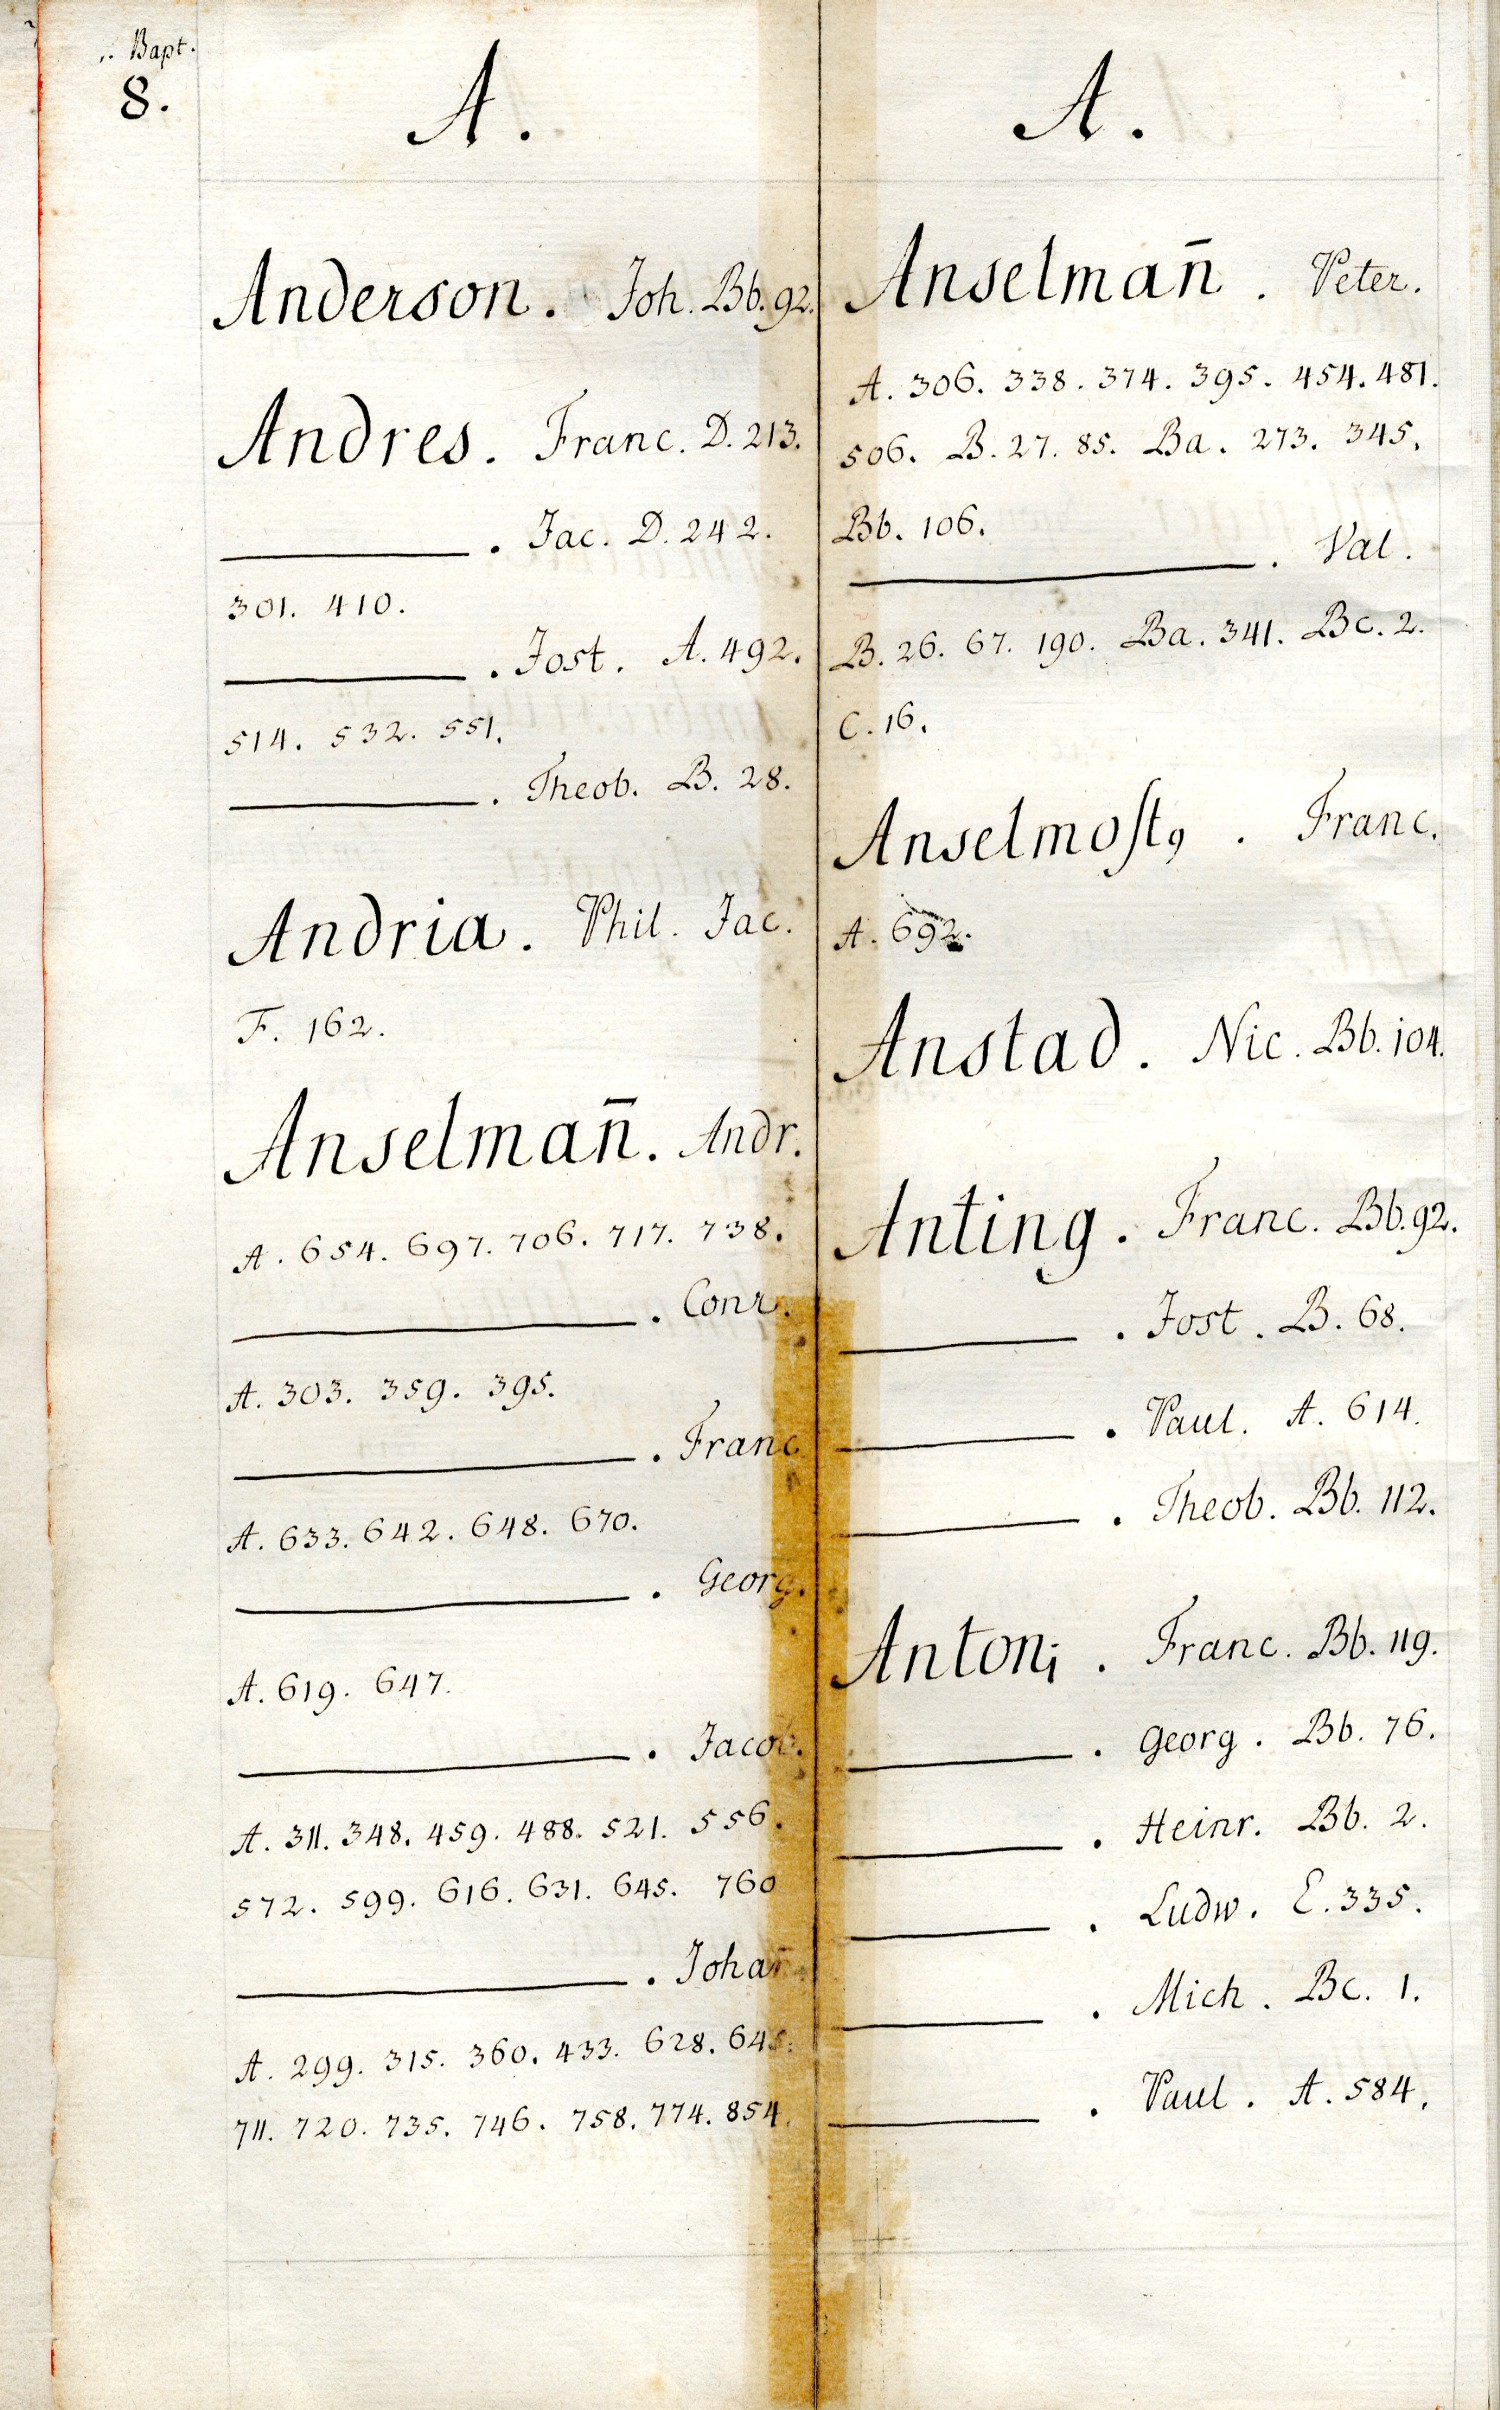 Bapt.
8.
A.
Anderson. Joh. Bb. 92.
Andres. Franc. D. 213.
. Jac. D. 242.
301. 410.
. Jost. A. 492.
514. 532. 551.
. Theob. B. 28.
Andria. Phil. Jac.
F. 162.
Anselman̄. Andr.
A. 654. 697. 706. 717. 738.
. Conr.
A. 303. 359. 395.
. Franc
A. 633. 642. 648. 670.
. Georg.
A. 619. 647.
. Jacob.
A. 311. 348. 459. 488. 521. 556.
572. 599. 616. 631. 645. 760
. Johan̄
A. 299. 315. 360. 433. 628. 645.
711. 720. 735. 746. 758. 774. 854.
A.
Anselman̄. Peter.
A. 306. 338. 374. 395. 454. 481.
506. B. 27. 85. Ba. 273. 345.
Bb. 106.
. Val.
B. 26. 67. 190. Ba. 341. Bc. 2.
C. 16.
. Franc.
A. 692.
Anstad. Nic. Bb. 104.
Anting. Franc. Bb. 92.
. Jost. B. 68.
. Paul. A. 614.
. Theob. Bb. 112.
Antoni. Franc. Bb. 119.
. Georg. Bb. 76.
. Heinr. Bb. 2.
. Ludw. E. 335.
. Mich. Bc. 1.
. Paul. A. 584.